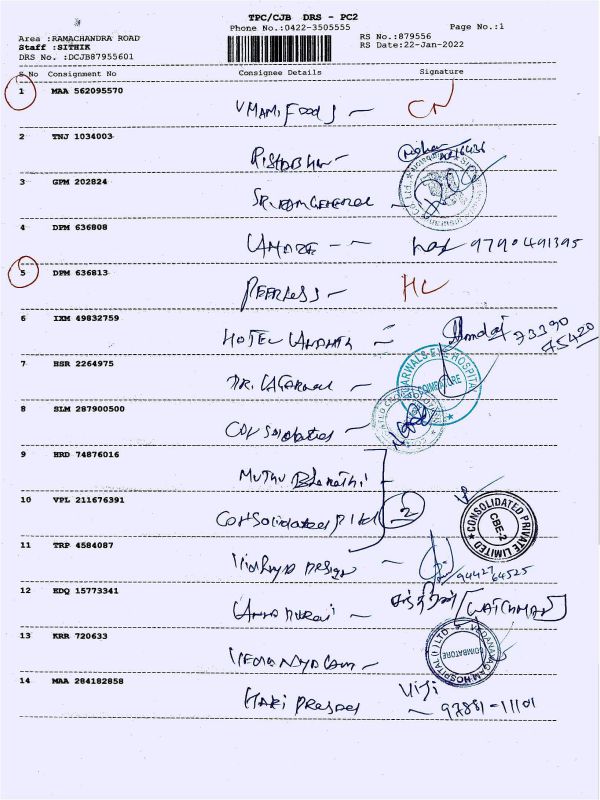 TPC/CJB DRS - PC2
Phone No.:0422-3505555
Page No.:1
Area :RAMACHANDRA ROAD
Staff :SITHIK
DRS No. :DCJB87955601
RS No.:879556
RS Date:22-Jan-2022
S No Consignment No Consignee Details Signature
1 MAA 562095570
VMAMI Foods -
2 TNJ 1034003
3 GPM 202824
4 DPM 636808
97904 91395
5 DPM 636813
PEERLESS -
6 IXM 49832759
HOTEL
73390
75420
7 HSR 2264975
DR. AGARWAL -
HOSPITAL
COIMBATORE
8 SLM 287900500
Consolidated -
9 HRD 74876016
Muthu Bharathi -
10 VPL 211676391
Consolidated P Ltd 2
CONSOLIDATED PRIVATE LIMITED
CBE-2
11 TRP 4584087
Design -
94427
64525
12 EDQ 15773341
Annadurai - [WATCHMAN]
13 KRR 720633
Vedanayagam -
VEDANAYAGAM HOSPITAL (I) LTD
COIMBATORE
14 MAA 284182858
Hari Prasad Viji
- 97881-11101